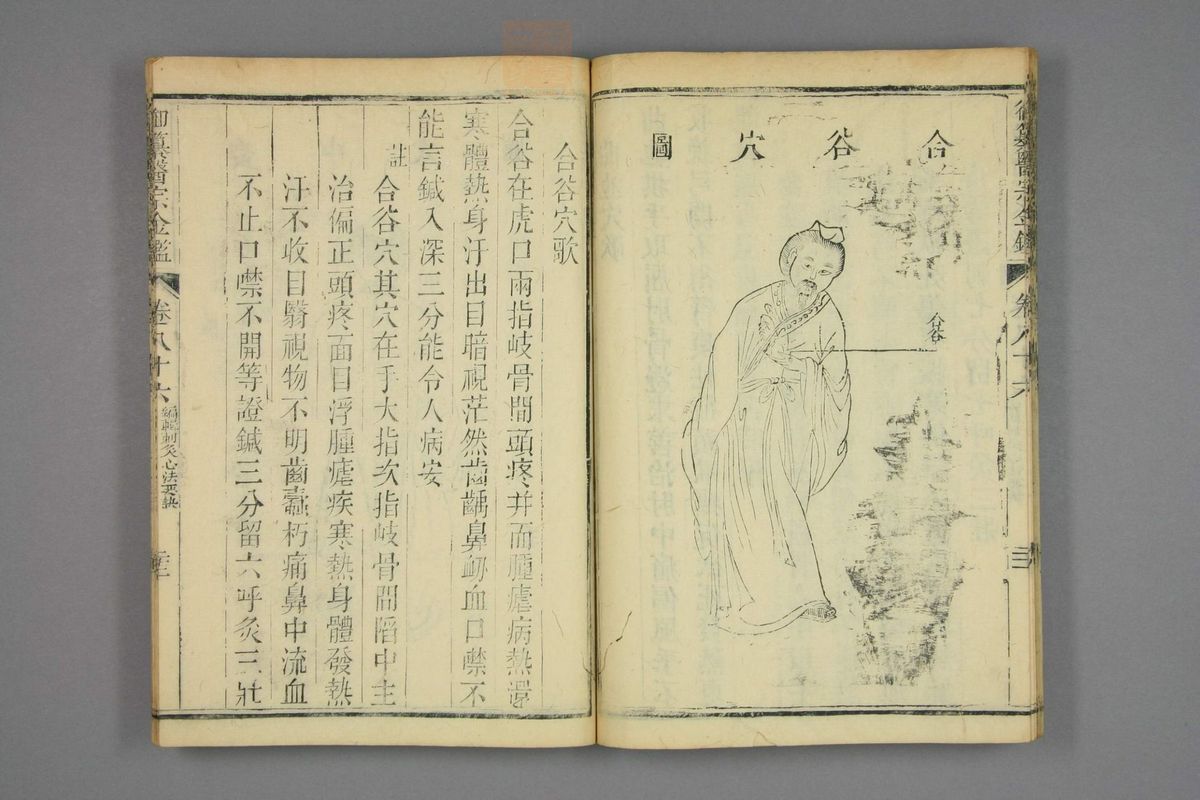 合谷穴圖
合谷
御纂醫宗金鑑 卷八十六
合谷穴歌
合谷在虎口兩指岐骨間頭疼并面腫瘧病熱還
寒體熱身汗出目暗視茫然齒齲鼻衄血口噤不
能言鍼入深三分能令人病安
註
合谷穴其穴在手大指次指岐骨間陷中主
治偏正頭疼面目浮腫瘧疾寒熱身體發熱
汗不收目翳視物不明齒齲朽痛鼻中流血
不止口噤不開等證鍼三分留六呼灸三壯
御纂醫宗金鑑 卷八十六 編輯刺灸心法要訣